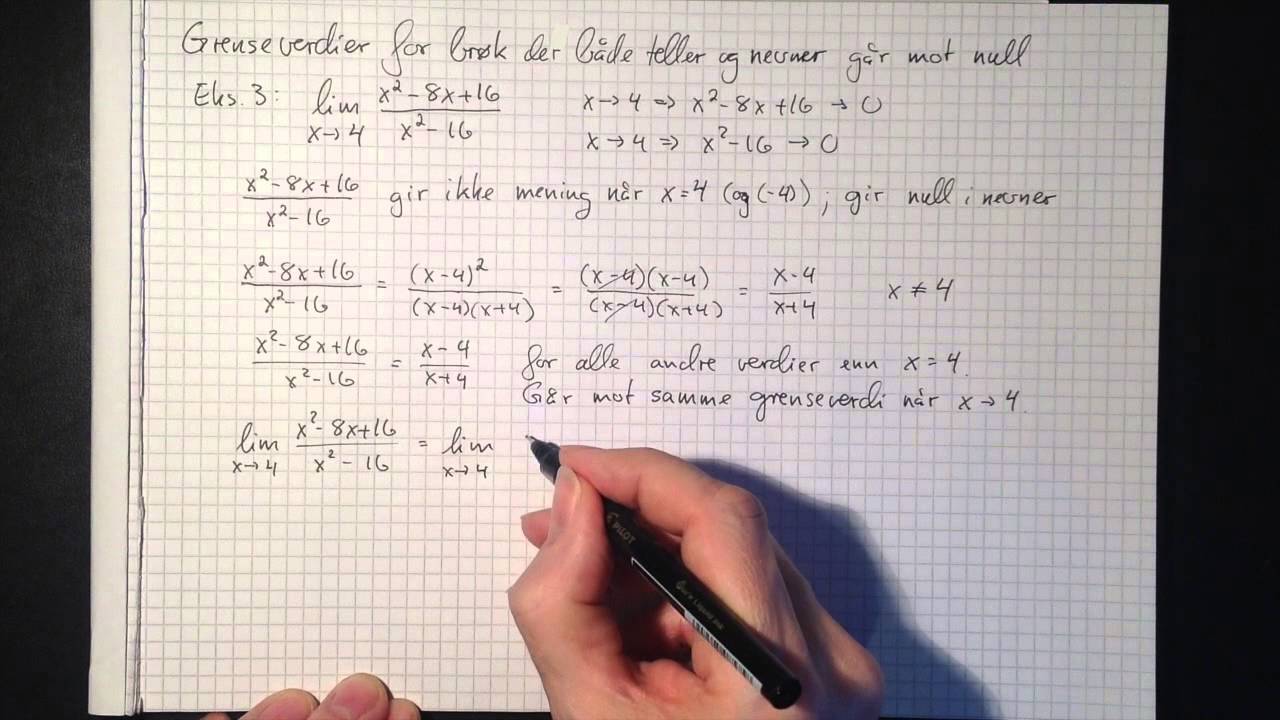 Grenseverdier for brøk der både teller og nevner går mot null
Eks. 3: lim x→4 (x²-8x+16)/(x²-16) x→4 ⇒ x²-8x+16 → 0
x→4 ⇒ x²-16 → 0
(x²-8x+16)/(x²-16) gir ikke mening når x=4 (og (-4)); gir null i nevner
(x²-8x+16)/(x²-16) = (x-4)²/((x-4)(x+4)) = ((x-4)(x-4))/((x-4)(x+4)) = (x-4)/(x+4) x ≠ 4
(x²-8x+16)/(x²-16) = (x-4)/(x+4) for alle andre verdier enn x=4.
Går mot samme grenseverdi når x→4.
lim x→4 (x²-8x+16)/(x²-16) = lim x→4
PILOT